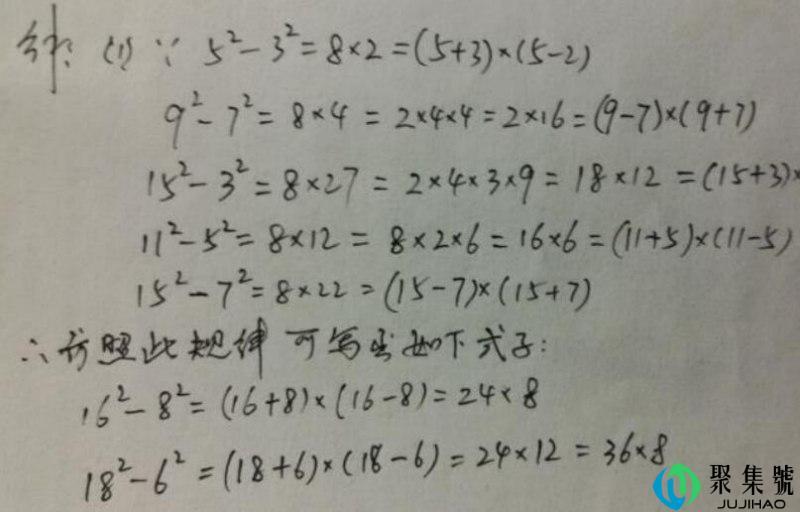 解: (1) ∵ 5²-3²=8×2=(5+3)×(5-2)
9²-7²=8×4=2×4×4=2×16=(9-7)×(9+7)
15²-3²=8×27=2×4×3×9=18×12=(15+3)×
11²-5²=8×12=8×2×6=16×6=(11+5)×(11-5)
15²-7²=8×22=(15-7)×(15+7)
∴仿照此规律可写出如下式子:
16²-8²=(16+8)×(16-8)=24×8
18²-6²=(18+6)×(18-6)=24×12=36×8
聚集號
JUJIHAO